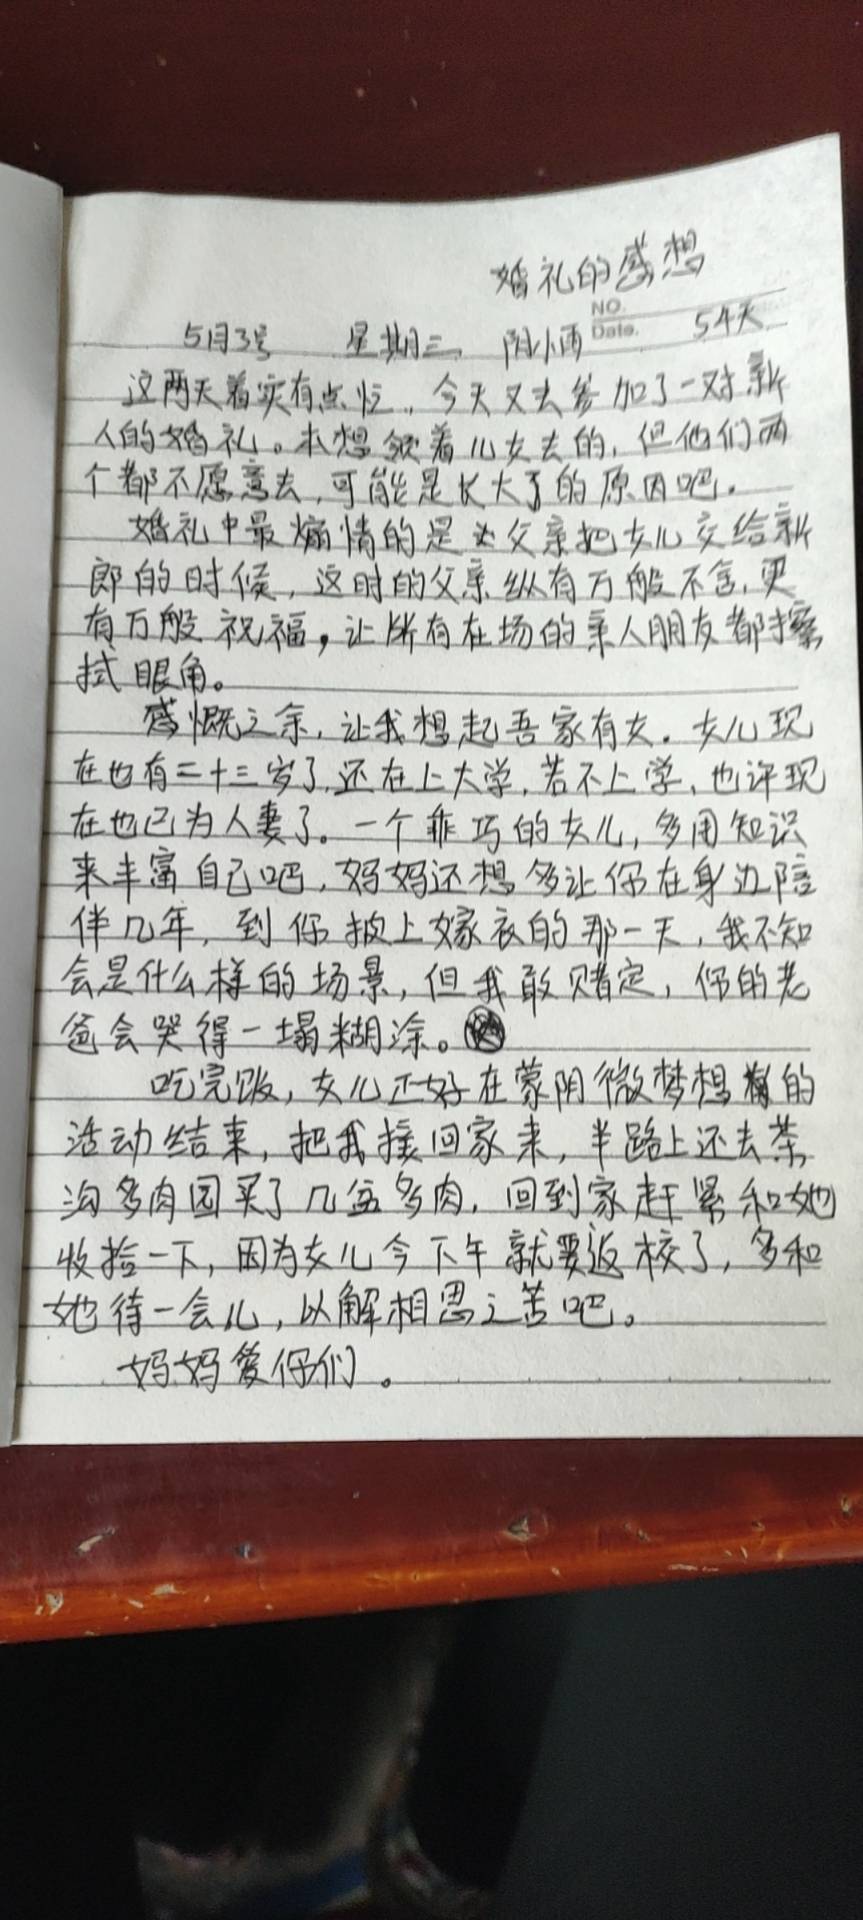 婚礼的感想
NO.
Date.
5月3号 星期三 阴小雨 54天
这两天着实有点忙,今天又去参加了一对新
人的婚礼。本想领着儿女去的,但他们两
个都不愿意去,可能是长大了的原因吧。
婚礼中最煽情的是父亲把女儿交给新
郎的时候,这时的父亲纵有万般不舍,更
有万般祝福,让所有在场的亲人朋友都擦
拭眼角。
感慨之余,让我想起吾家有女。女儿现
在也有二十三岁了,还在上大学,若不上学,也许现
在也已为人妻了。一个乖巧的女儿,多用知识
来丰富自己吧,妈妈还想多让你在身边陪
伴几年,到你披上嫁衣的那一天,我不知
会是什么样的场景,但我敢赌定,你的老
爸会哭得一塌糊涂。
吃完饭,女儿正好在蒙阴微梦想的
活动结束,把我接回家来,半路上还去茶
沟多肉园买了几盆多肉,回到家赶紧和她
收拾一下,因为女儿今下午就要返校了,多和
她待一会儿,以解相思之苦吧。
妈妈爱你们。